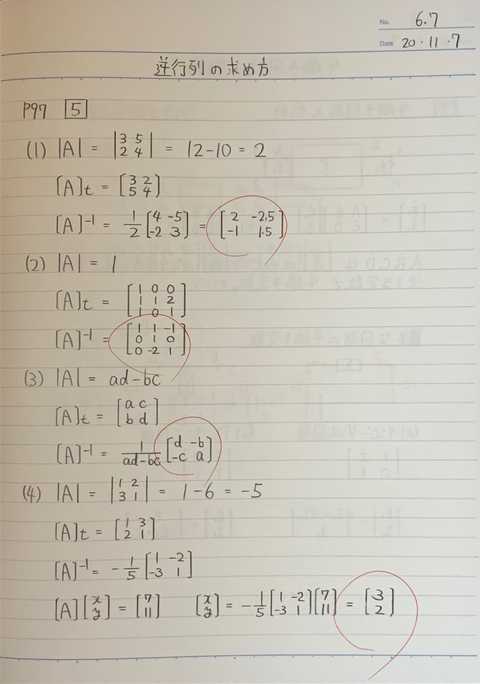 No. 6.7
Date 20・11・7
逆行列の求め方
P97 5
(1) |A| = |3 5; 2 4| = 12-10 = 2
[A]t = [3 2; 5 4]
[A]-1 = 1/2 [4 -5; -2 3] = [2 -2.5; -1 1.5]
(2) |A| = 1
[A]t = [1 0 0; 1 1 2; 1 0 1]
[A]-1 = [1 1 -1; 0 1 0; 0 -2 1]
(3) |A| = ad-bc
[A]t = [a c; b d]
[A]-1 = 1/ad-bc [d -b; -c a]
(4) |A| = |1 2; 3 1| = 1-6 = -5
[A]t = [1 3; 2 1]
[A]-1 = -1/5 [1 -2; -3 1]
[A][x; y] = [7; 11] [x; y] = -1/5 [1 -2; -3 1][7; 11] = [3; 2]